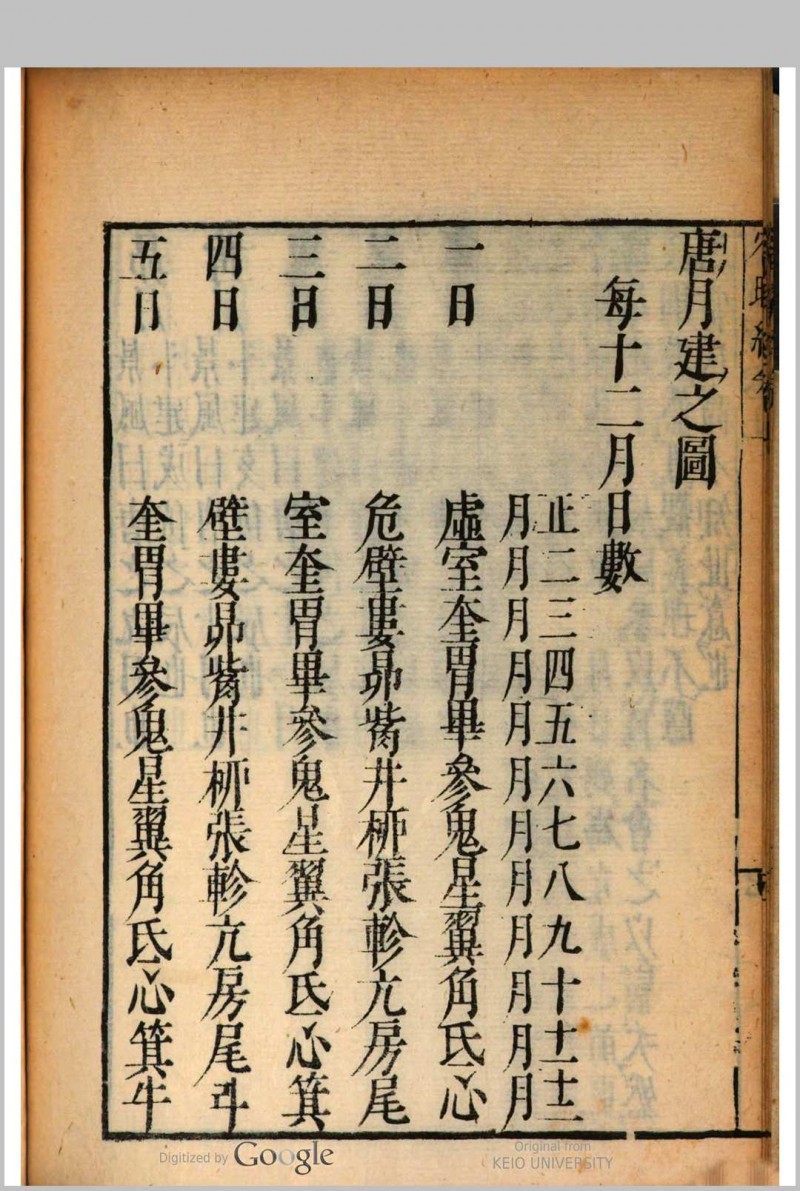 唐月建之圖
每十二月日數
正月 二月 三月 四月 五月 六月 七月 八月 九月 十月 十一月 十二月
一日 虛室奎胃畢參鬼星翼角氐心
二日 危壁婁昴觜井柳張軫亢房尾
三日 室奎胃畢參鬼星翼角氐心箕
四日 壁婁昴觜井柳張軫亢房尾斗
五日 奎胃畢參鬼星翼角氐心箕牛
Digitized by Google
Original from
KEIO UNIVERSITY